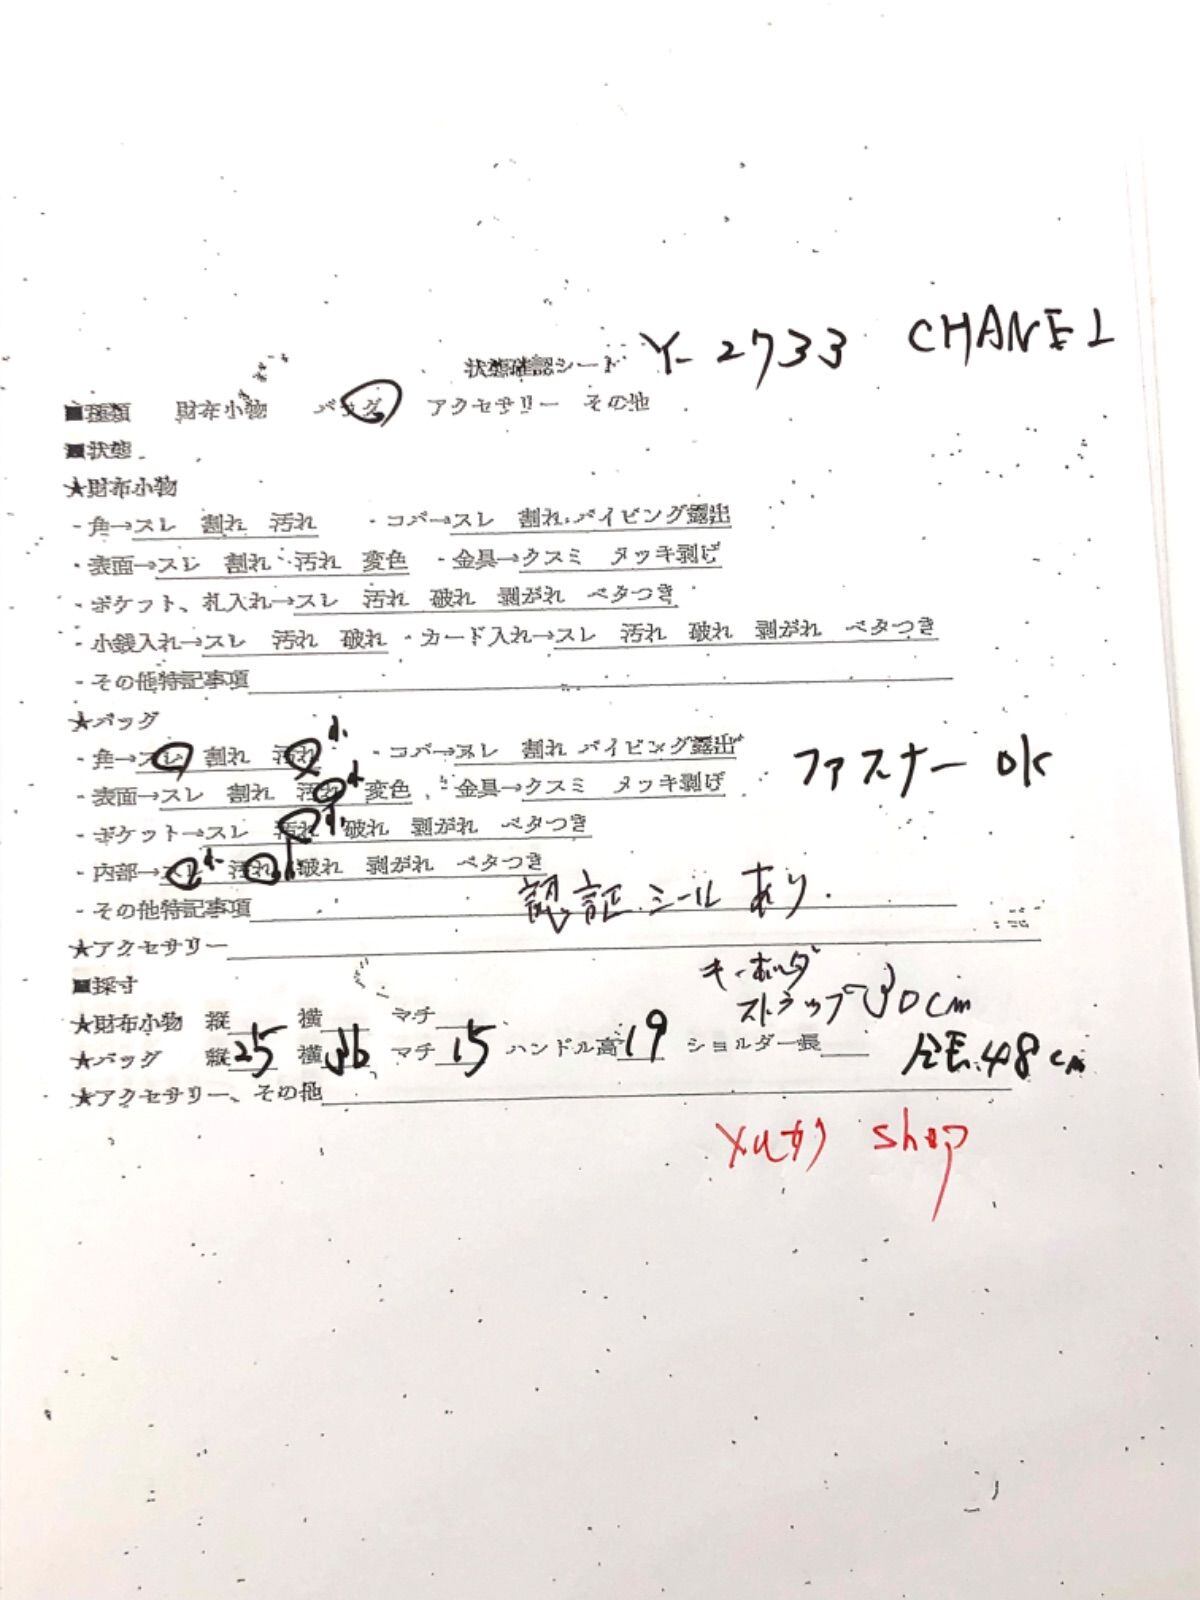 状態確認シート Y-2733 CHANEL
■種類 財布小物 バッグ アクセサリー その他
■状態
★財布小物
・角→スレ 割れ 汚れ ・コバ→スレ 割れ パイピング露出
・表面→スレ 割れ 汚れ 変色 ・金具→クスミ メッキ剥げ
・ポケット、札入れ→スレ 汚れ 破れ 剥がれ ベタつき
・小銭入れ→スレ 汚れ 破れ ・カード入れ→スレ 汚れ 破れ 剥がれ ベタつき
・その他特記事項
★バッグ
・角→スレ 割れ 汚れ 小 ・コバ→スレ 割れ パイピング露出
・表面→スレ 割れ 汚れ 小 変色 ・金具→クスミ メッキ剥げ
ファスナー OK
・ポケット→スレ 汚れ 小 破れ 剥がれ ベタつき
・内部→スレ 小 汚れ 小 破れ 剥がれ ベタつき
・その他特記事項 認証シールあり.
★アクセサリー
■採寸
キーホルダ
ストラップ 30cm
★財布小物 縦 横 マチ
★バッグ 縦25 横36 マチ15 ハンドル高19 ショルダー長 全長48cm
★アクセサリー、その他
shop